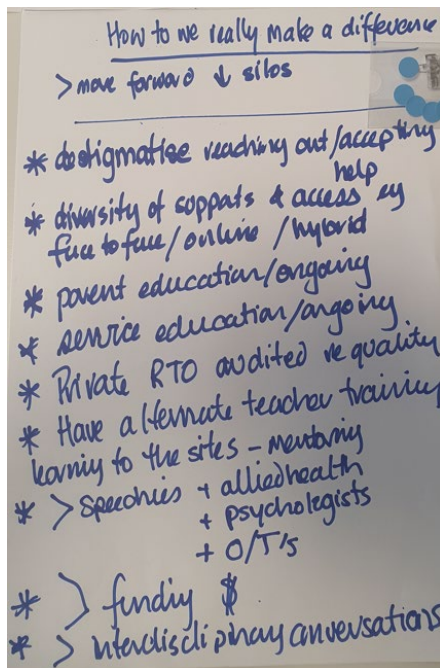 How to we really make a difference
> move forward ↓ silos
* destigmatise reaching out/accepting
help
* diversity of supports & access eg
face to face/online/hybrid
* parent education/ongoing
* service education/ongoing
* Private RTO audited re quality
* Have alternate teacher training
learning to the sites - mentoring
* > speechies + alliedhealth
+ psychologists
+ O/T's
* > funding $
* > interdisciplinary conversations